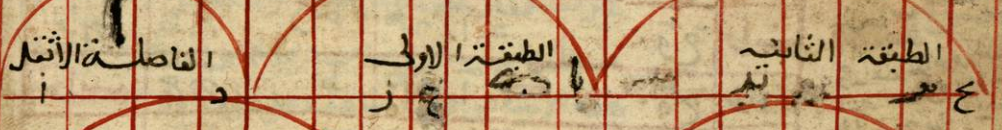 الطبقة الثانيه الطبقة الاولى الفاصلة الأثقل
يح يه يا ح ز د ا